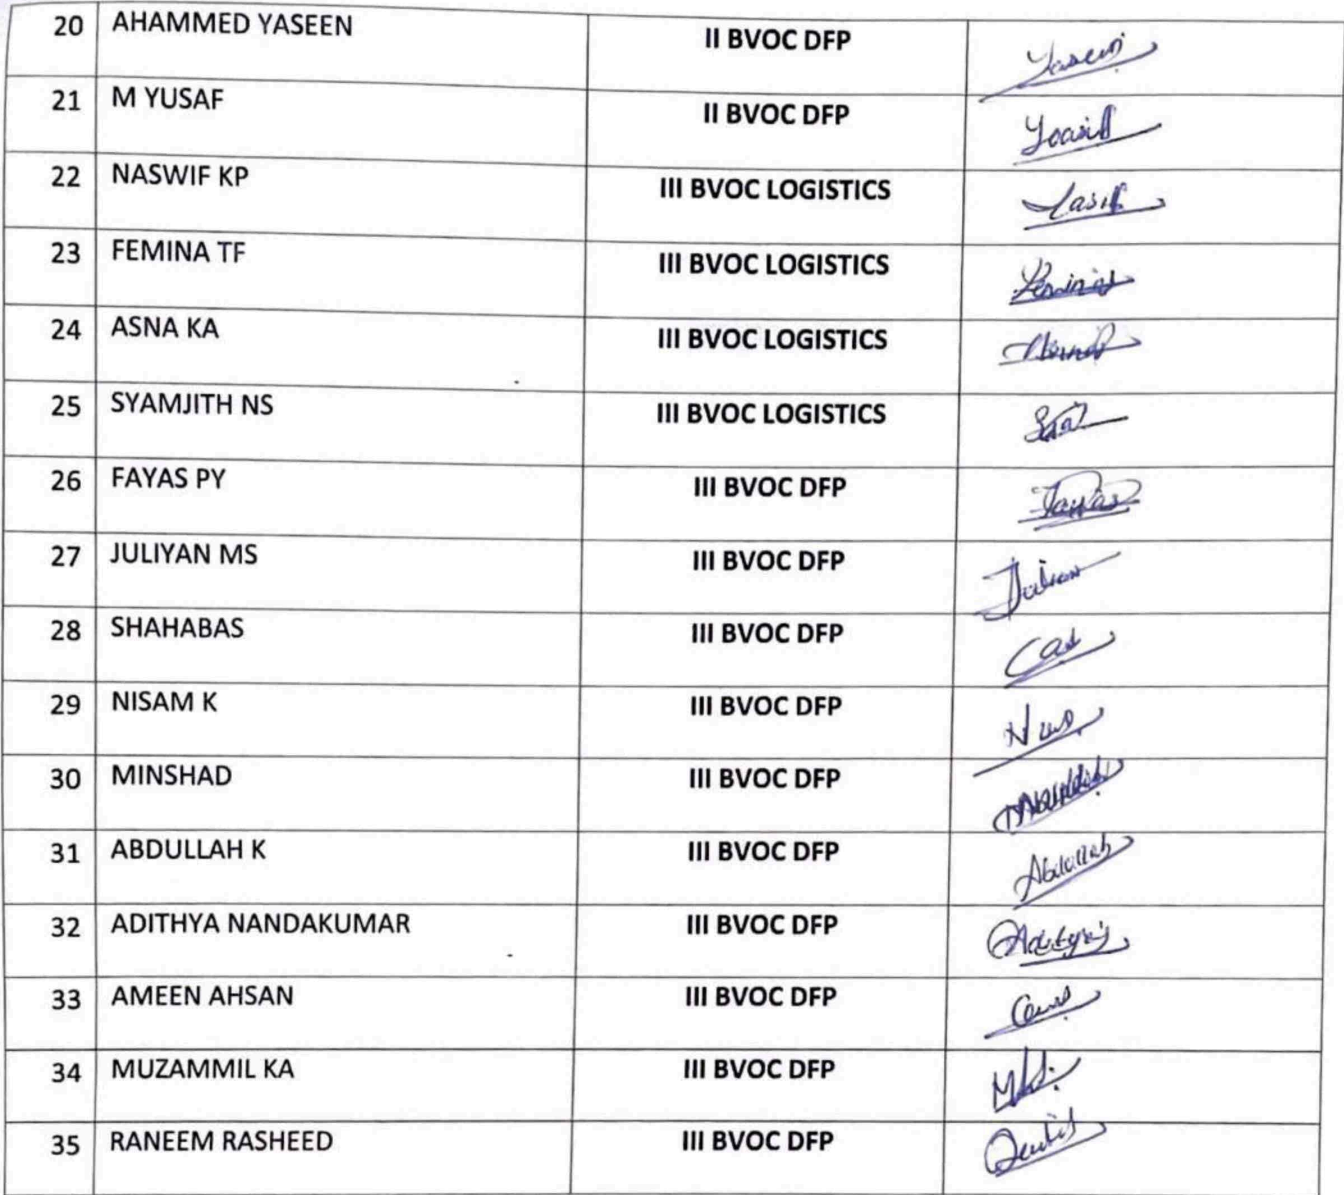 20 AHAMMED YASEEN II BVOC DFP Yaseen
21 M YUSAF II BVOC DFP
22 NASWIF KP III BVOC LOGISTICS
23 FEMINA TF III BVOC LOGISTICS
24 ASNA KA III BVOC LOGISTICS
25 SYAMJITH NS III BVOC LOGISTICS
26 FAYAS PY III BVOC DFP Fayas
27 JULIYAN MS III BVOC DFP
28 SHAHABAS III BVOC DFP
29 NISAM K III BVOC DFP
30 MINSHAD III BVOC DFP
31 ABDULLAH K III BVOC DFP Abdullah
32 ADITHYA NANDAKUMAR III BVOC DFP
33 AMEEN AHSAN III BVOC DFP
34 MUZAMMIL KA III BVOC DFP
35 RANEEM RASHEED III BVOC DFP